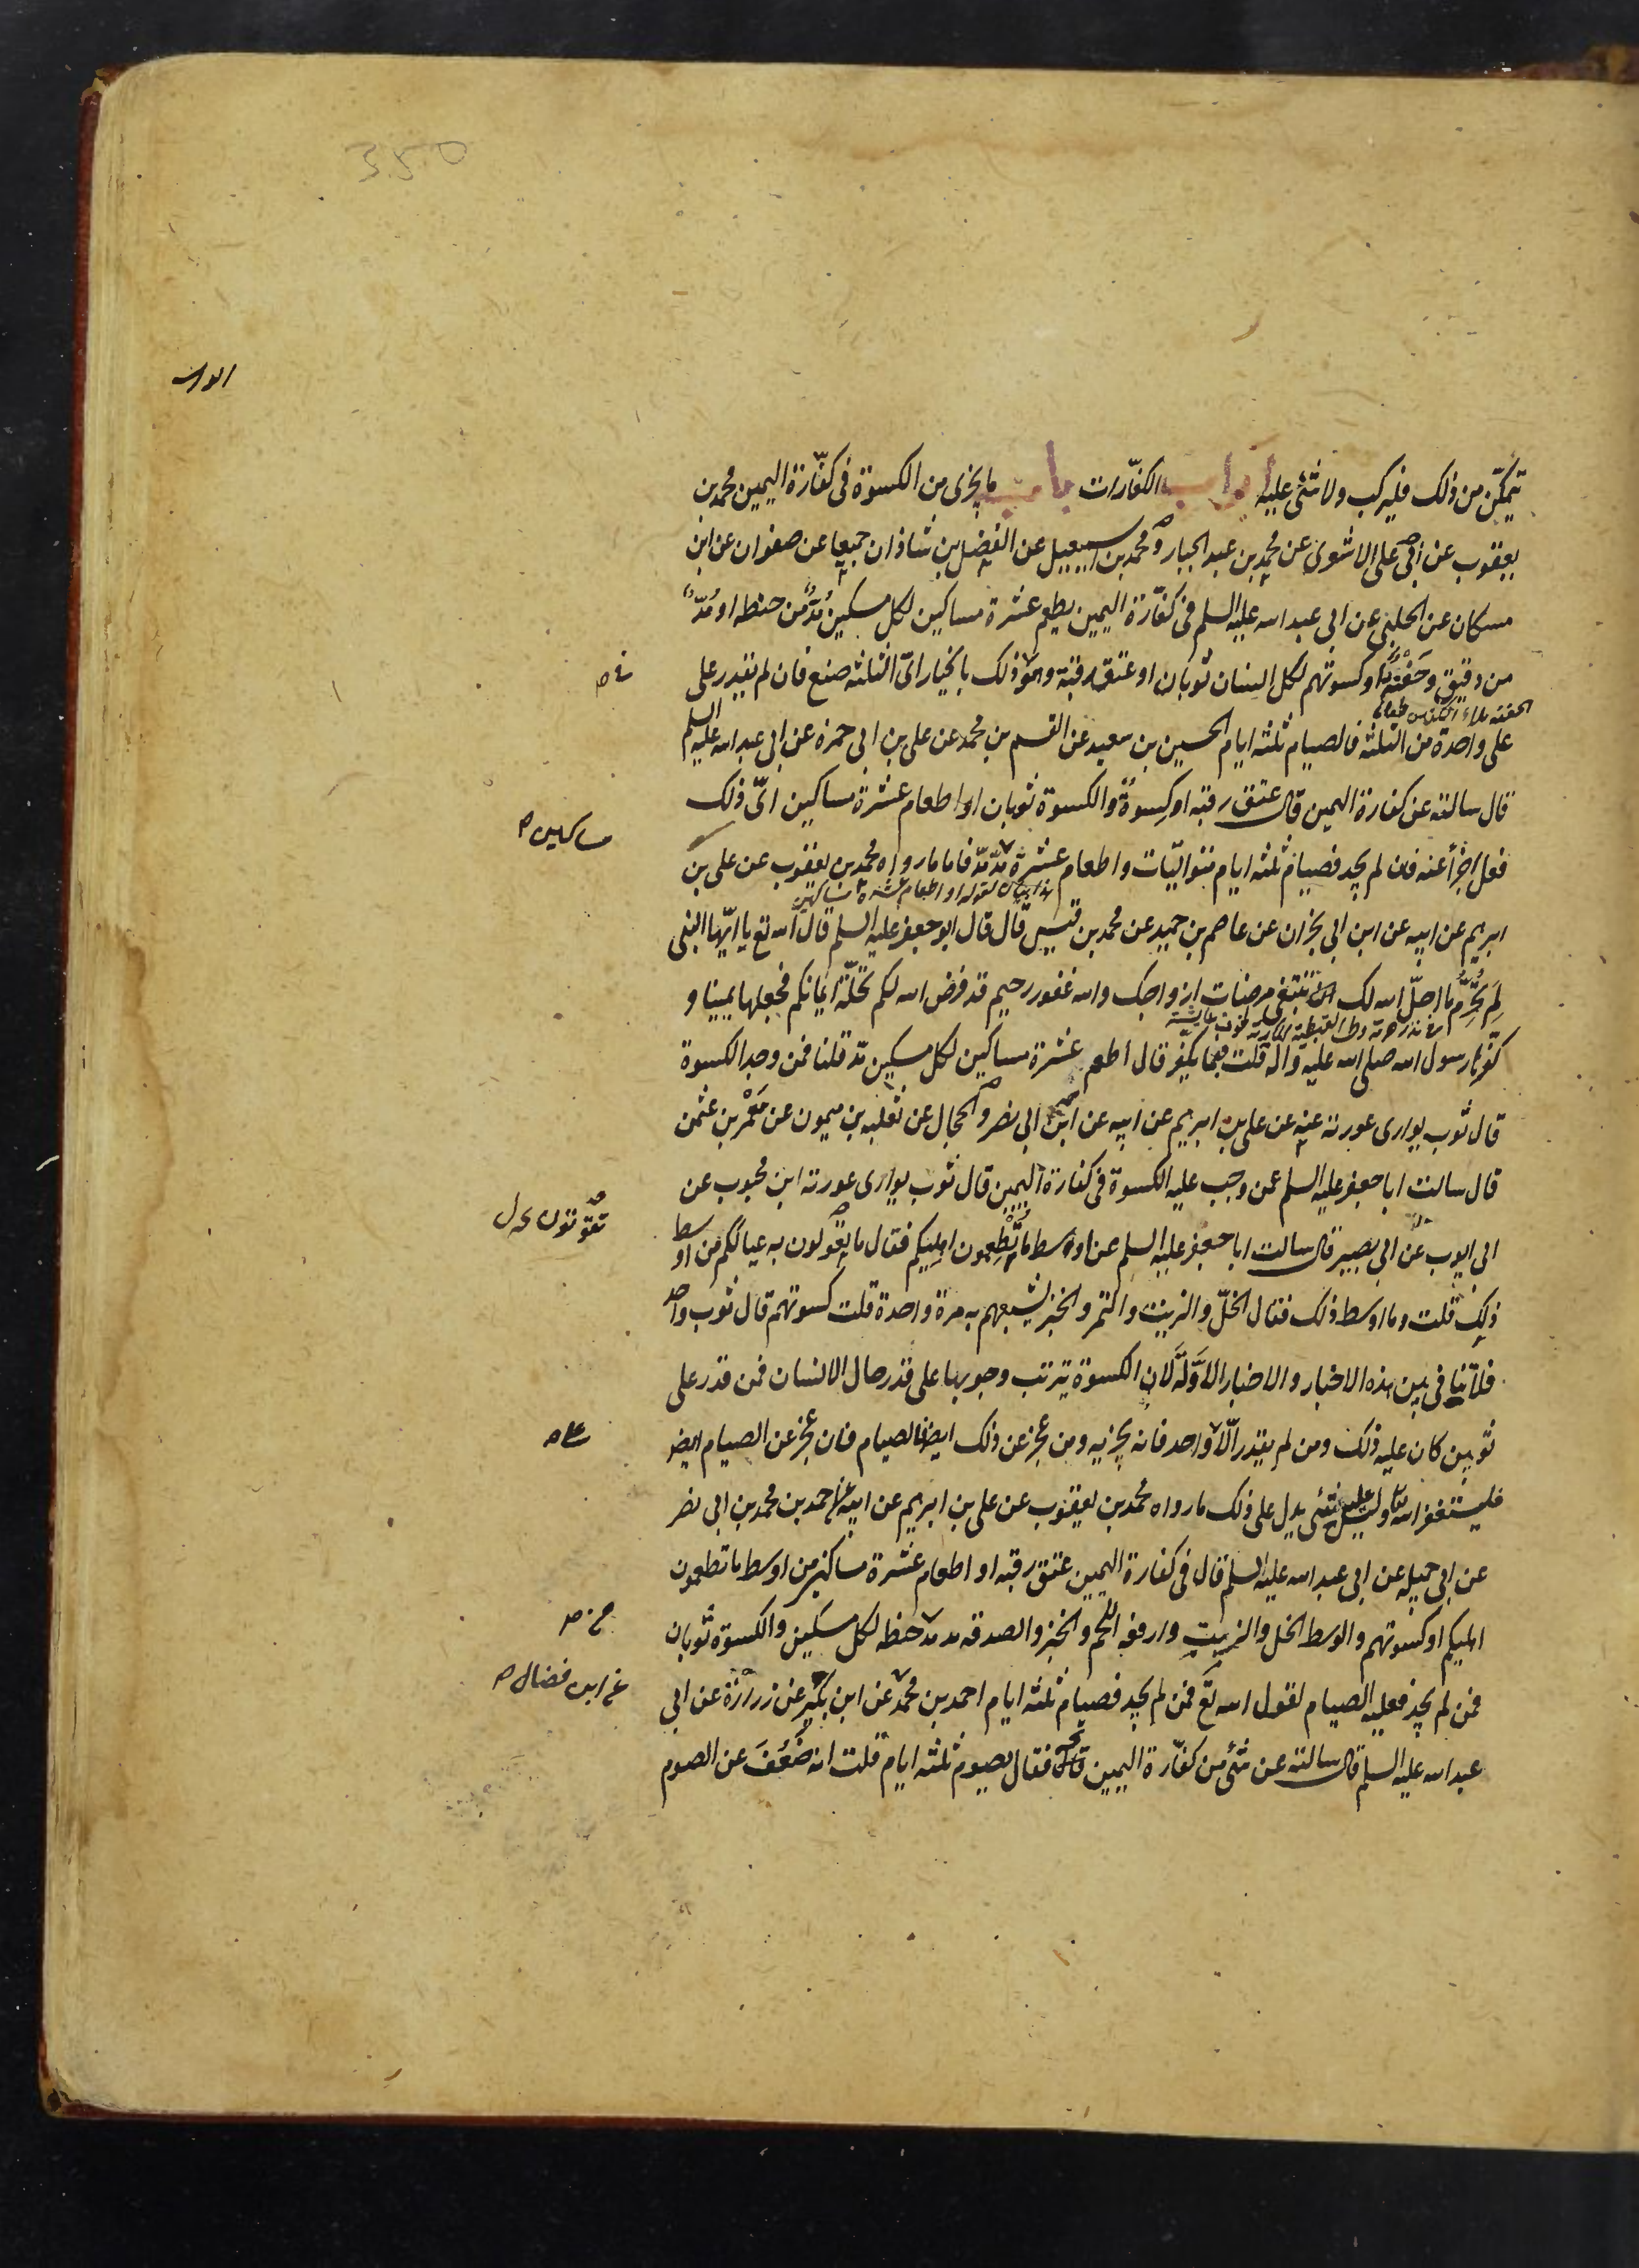 350
ابواب
يتمكّن من ذلك فليركب ولا شئ عليه ابواب الكفّارات باب ما يجزى من الكسوة فى كفّارة اليمين محمد بن
يعقوب عن ابى على الاشعرى عن محمد بن عبد الجبار ومحمد بن اسمعيل عن الفضل بن شاذان جميعا عن صفوان عن ابن
مسكان عن الحلبى عن ابى عبد الله عليه السلم فى كفّارة اليمين يطعم عشرة مساكين لكل مسكين مُدٌّ من حنطة او مُدّ
من دقيق وحَفْنَة او كسوتهم لكل انسان ثوبان او عتق رقبة وهو فى ذلك بالخيار اىّ الثلثة صنع فان لم يقدر على
الحفنه ملاء الكفين من طعام
على واحدة من الثلثة فالصيام ثلثة ايام الحسين بن سعيد عن القسم بن محمد عن على بن ابى حمزة عن ابى عبد الله عليه السلم
قال سالته عن كفارة اليمين قال عتق رقبة او كِسوةٌ والكسوة ثوبان او اطعام عشرة مساكين اىّ ذلك
مساكين ص
فعل اجزأ عنه فان لم يجد فصيام ثلثة ايام متواليّات واطعام عشرة مُدّ مُدّ فاما ما رواه محمد بن يعقوب عن على بن
هذا بيان لقوله او اطعام عشرة مساكين
ابرهيم عن ابيه عن ابن ابى نجران عن عاصم بن حميد عن محمد بن قيس قال قال ابو جعفر عليه السلم قال الله تع يا ايّها النبى
لِمَ تُحَرِّمُ ما احلّ الله لك تبتغى مرضات ازواجك والله غفور رحيم قد فرض الله لكم تحلّة ايمانكم فجعلها يمينا و
كفّرها رسول الله صلى الله عليه وآله قلت بما يكفّر قال اطعم عشرة مساكين لكل مسكين مُدّ قلنا فمن وجد الكسوة
قال ثوب يوارى عورته عنه عن على بن ابرهيم عن ابيه عن ابن ابى نصر والحجال عن ثعلبه بن ميمون عن مَعْمَر بن عثمن
قال سالت ابا جعفر عليه السلم عن وجب عليه الكسوة فى كفارة اليمين قال ثوب يوارى عورته ابن محبوب عن
ابى ايوب عن ابى بصير قال سالت ابا جعفر عليه السلم عن اوسط ما تُطعِمون اهليكم فقال ما تعولون به عيالكم من اوسط
تقوتون
ذلك قلت وما اوسط ذلك فقال الخلّ والزيت والتمر والخبز تشبعهم به مرة واحدة قلت كسوتهم قال ثوب واحد
فلا تنافى بين هذه الاخبار والاخبار الاوّلة لان الكسوة يترتب وجوبها على قدر حال الانسان فمن قدر على
ثوبين كان عليه ذلك ومن لم يقدر الّا واحد فانه يجزيه ومن عجز عن ذلك ايضا فالصيام فان عجز عن الصيام ايضا
على ص
فليستغفر الله وليس عليه شئ يدل على ذلك ما رواه محمد بن يعقوب عن على بن ابرهيم عن ابيه عن احمد بن محمد بن ابى نصر
عن ابى جميله عن ابى عبد الله عليه السلم قال فى كفارة اليمين عتق رقبه او اطعام عشرة مساكين من اوسط ما تطعمون
اهليكم او كسوتهم والوسط الخل والزيت وارفعه اللحم والخبز والصدقة مد مد حنطة لكل مسكين والكسوة ثوبان
من ص
فمن لم يجد فعليه الصيام لقول الله تع فمن لم يجد فصيام ثلثة ايام احمد بن محمد عن ابن بكير عن زرارة عن ابى
عن ابن فضال ص
عبد الله عليه السلم قال سالته عن شئ من كفّارة اليمين فقال يصوم ثلثة ايام قلت انه ضَعُفَ عن الصوم